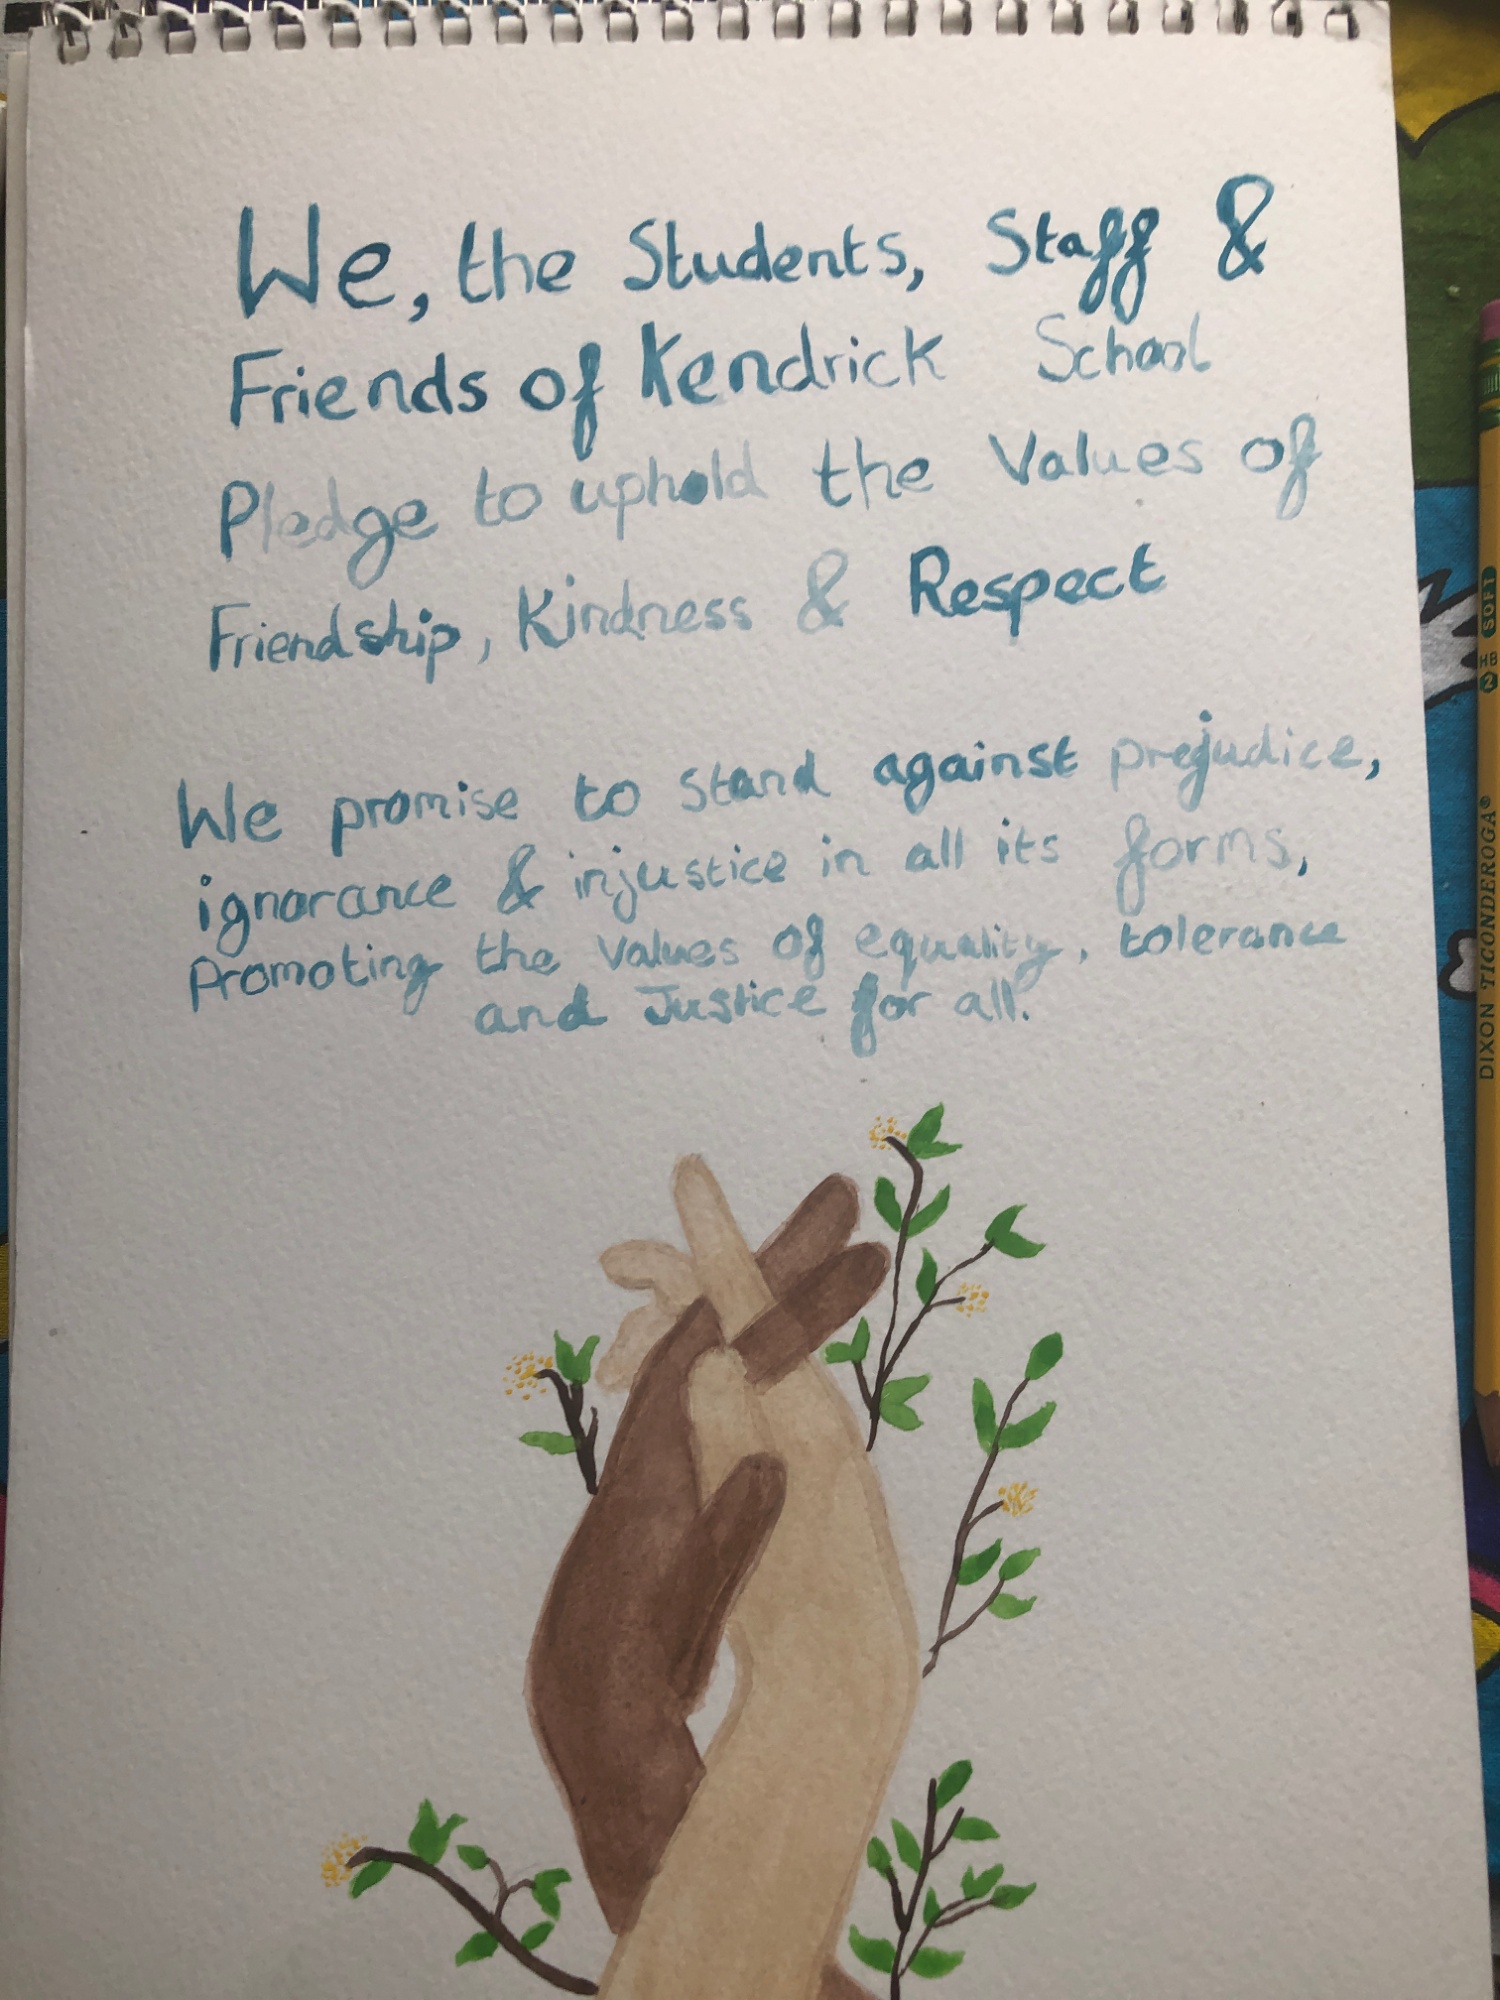 We, the Students, Staff &
Friends of Kendrick School
Pledge to uphold the Values of
Friendship, Kindness & Respect
We promise to stand against prejudice,
ignorance & injustice in all its forms,
Promoting the Values of equality, tolerance
and Justice for all.
DIXON TICONDEROGA® 2 HB SOFT